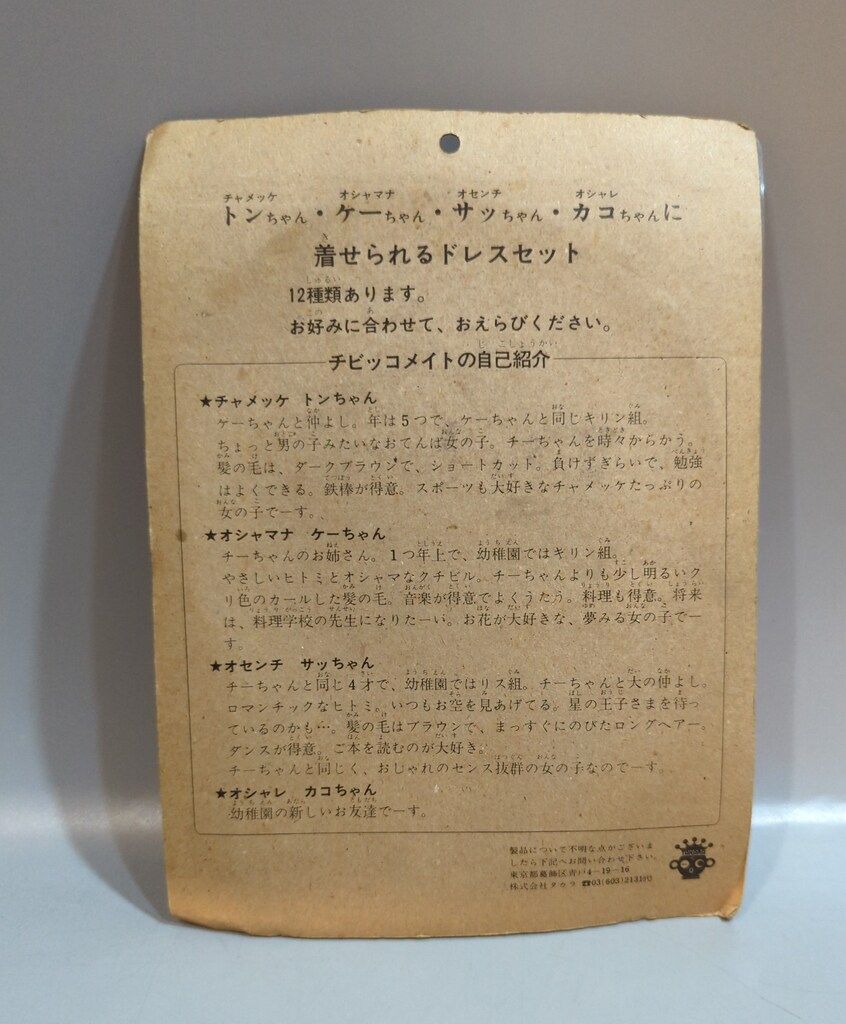 チャメッケ オシャマナ オセンチ オシャレ
トンちゃん・ケーちゃん・サッちゃん・カコちゃんに
着せられるドレスセット
12種類あります。
お好みに合わせて、おえらびください。
チビッコメイトの自己紹介
★チャメッケ トンちゃん
ケーちゃんと仲よし。年は5つで、ケーちゃんと同じキリン組。
ちょっと男の子みたいなおてんば女の子。チーちゃんを時々からかう。
髪の毛は、ダークブラウンで、ショートカット。負けずぎらいで、勉強
はよくできる。鉄棒が得意。スポーツも大好きなチャメッケたっぷりの
女の子でーす。
★オシャマナ ケーちゃん
チーちゃんのお姉さん。1つ年上で、幼稚園ではキリン組。
やさしいヒトミとオシャマなクチビル。チーちゃんよりも少し明るいク
リ色のカールした髪の毛。音楽が得意でよくうたう。料理も得意。将来
は、料理学校の先生になりたーい。お花が大好きな、夢みる女の子でー
す。
★オセンチ サッちゃん
チーちゃんと同じ4才で、幼稚園ではリス組。チーちゃんと大の仲よし。
ロマンチックなヒトミ。いつもお空を見あげてる。星の王子さまを待っ
ているのかも…。髪の毛はブラウンで、まっすぐにのびたロングヘアー。
ダンスが得意。ご本を読むのが大好き。
チーちゃんと同じく、おしゃれのセンス抜群の女の子なのでーす。
★オシャレ カコちゃん
幼稚園の新しいお友達でーす。
製品について不明な点がございま
したら下記へお問い合わせ下さい。
東京都葛飾区青戸4-19-16
株式会社タカラ ☎03(603)2131㈹